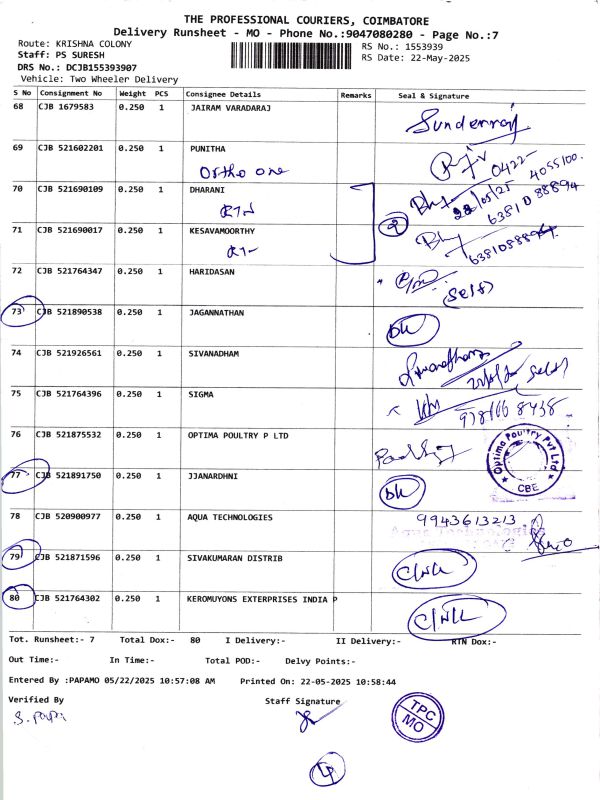 THE PROFESSIONAL COURIERS, COIMBATORE
Delivery Runsheet - MO - Phone No.:9047080280 - Page No.:7
Route: KRISHNA COLONY
Staff: PS SURESH
RS No.: 1553939
RS Date: 22-May-2025
DRS No.: DCJB155393907
Vehicle: Two Wheeler Delivery
S No Consignment No Weight PCS Consignee Details Remarks Seal & Signature
68 CJB 1679583 0.250 1 JAIRAM VARADARAJ
Sunderraj
69 CJB 521602201 0.250 1 PUNITHA
Ortho one
0422- 4055100.
70 CJB 521690109 0.250 1 DHARANI
22/05/25 63810 88894
2
71 CJB 521690017 0.250 1 KESAVAMOORTHY
72 CJB 521764347 0.250 1 HARIDASAN
(Self)
73 CJB 521890538 0.250 1 JAGANNATHAN
DL
74 CJB 521926561 0.250 1 SIVANADHAM
Self
75 CJB 521764396 0.250 1 SIGMA
76 CJB 521875532 0.250 1 OPTIMA POULTRY P LTD
Optima Poultry Pvt Ltd
CBE
77 CJB 521891750 0.250 1 JJANARDHNI
DL
78 CJB 520900977 0.250 1 AQUA TECHNOLOGIES
9943613213
Aqua Technologies
79 CJB 521871596 0.250 1 SIVAKUMARAN DISTRIB
C/NLL
80 CJB 521764302 0.250 1 KEROMUYONS EXTERPRISES INDIA P
C/NLL
Tot. Runsheet:- 7 Total Dox:- 80 I Delivery:- II Delivery:- RTN Dox:-
Out Time:- In Time:- Total POD:- Delvy Points:-
Entered By :PAPAMO 05/22/2025 10:57:08 AM Printed On: 22-05-2025 10:58:44
Verified By Staff Signature
S. Papa
TPC
MO
4